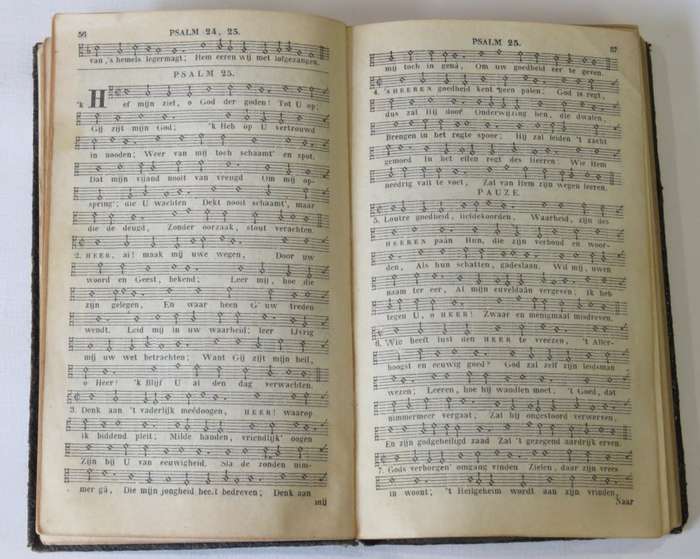 56
PSALM 24, 25.
van 's hemels legermagt; Hem eeren wij met lofgezangen.
PSALM 25.
'k Hef mijn ziel, o God der goden! Tot U op;
Gij zijt mijn God; 'k Heb op U vertrouwd
in nooden; Weer van mij toch schaamt' en spot.
Dat mijn vijand nooit van vreugd Om mij op-
spring'; die U wachten Dekt nooit schaamt', maar
die de deugd, Zonder oorzaak, stout verachten.
2. HEER, ai! maak mij uwe wegen, Door uw
woord en Geest, bekend; Leer mij, hoe die
zijn gelegen, En waar heen G' uw treden
wendt. Leid mij in uw waarheid; leer IJvrig
mij uw wet betrachten; Want Gij zijt mijn heil,
o Heer! 'k Blijf U al den dag verwachten.
3. Denk aan 't vaderlijk meêdoogen, HEER! waarop
ik biddend pleit; Milde handen, vriendlijk' oogen
Zijn bij U van eeuwigheid. Sla de zonden nim-
mer gâ, Die mijn jongheid heeft bedreven; Denk aan
mij
PSALM 25.
57
mij toch in genâ, Om uw goedheid eer te geven.
4. 's HEEREN goedheid kent geen palen; God is regt,
dus zal Hij door Onderwijzing hen, die dwalen,
Brengen in het regte spoor; Hij zal leiden 't zacht
gemoed In het effen regt des Heeren: Wie Hem
needrig valt te voet, Zal van Hem zijn wegen leeren.
PAUZE.
5. Loutre goedheid, liefdekoorden, Waarheid, zijn des
HEEREN paân Hun, die zijn verbond en woor-
den, Als hun schatten, gadeslaan. Wil mij, uwen
naam ter eer, Al mijn euveldaân vergeven; Ik heb
tegen U, o HEER! Zwaar en menigmaal misdreven.
6. Wie heeft lust den HEER te vreezen, 't Aller-
hoogst en eeuwig goed? God zal zelf zijn leidsman
wezen; Leeren, hoe hij wandlen moet. 't Goed, dat
nimmermeer vergaat, Zal hij ongestoord verwerven,
En zijn godgeheiligd zaad Zal 't gezegend aardrijk erven.
7. Gods verborgen' omgang vinden Zielen, daar zijn vrees
in woont; 't Heilgeheim wordt aan zijn vrinden,
Naar